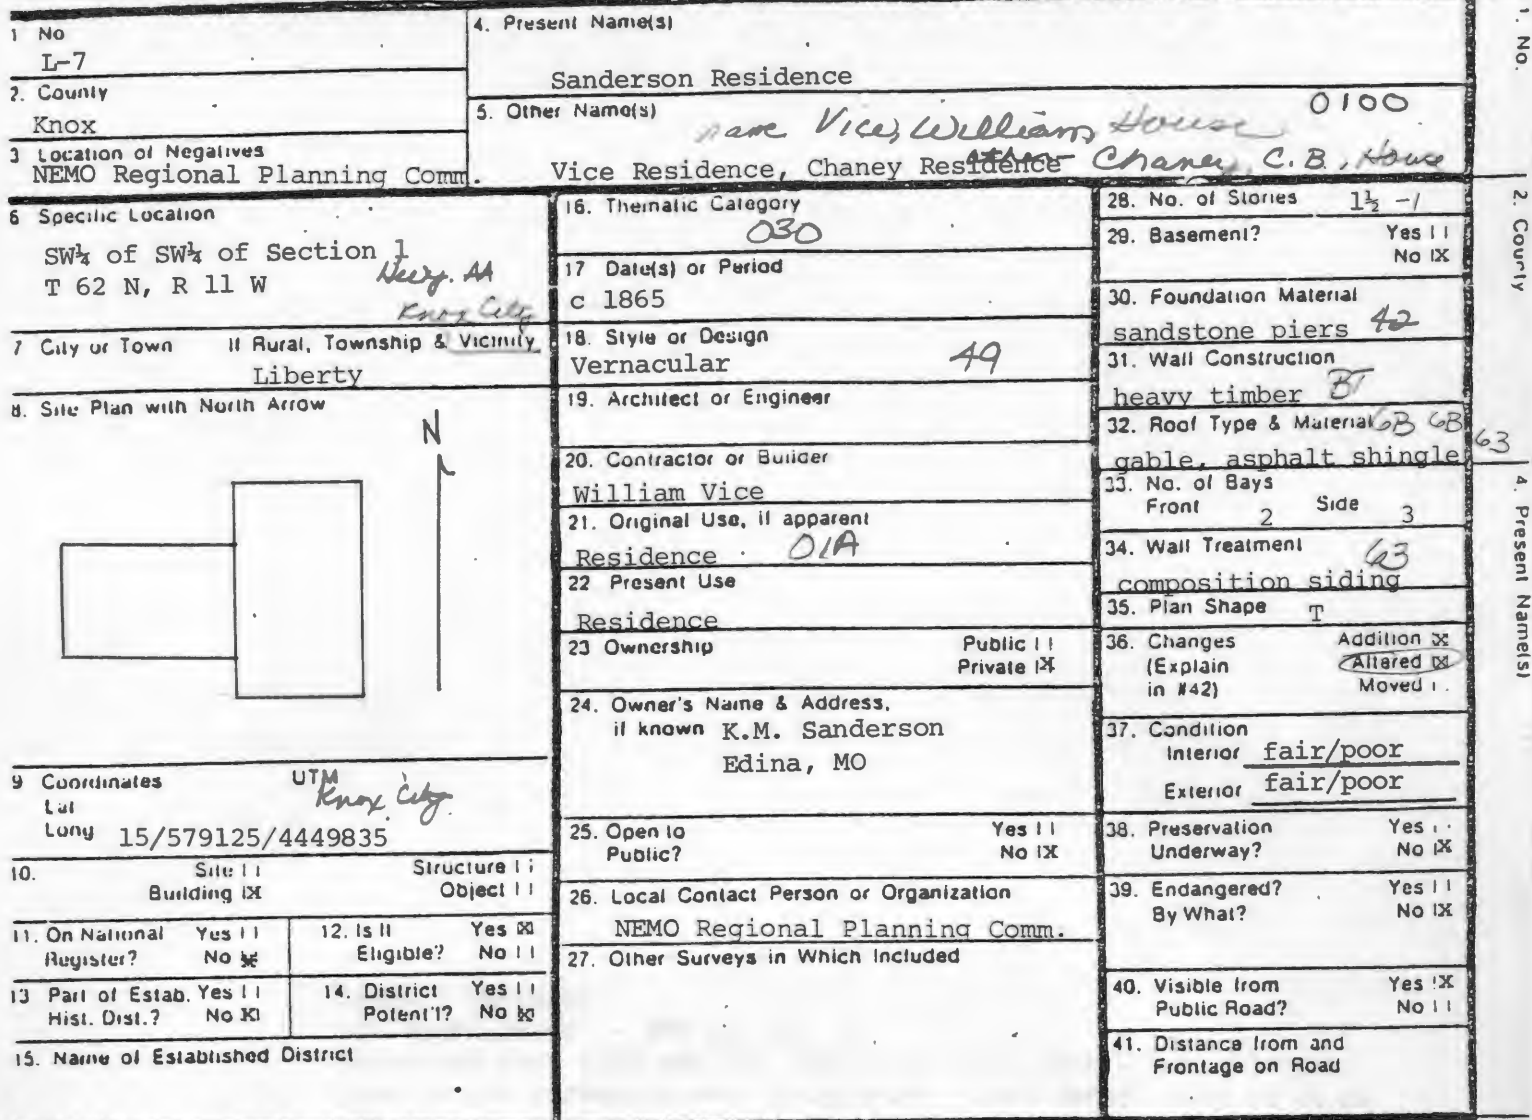 1 No
L-7
2. County
Knox
3 Location of Negatives
NEMO Regional Planning Comm.
4. Present Name(s)
Sanderson Residence
5. Other Name(s)
0100
name Vice, William House
Vice Residence, Chaney Residence other Chaney, C.B., House
6 Specific Location
SW¼ of SW¼ of Section 1
T 62 N, R 11 W
Hwy. AA
Knox City
7 City or Town If Rural, Township & Vicinity
Liberty
8. Site Plan with North Arrow
N
9 Coordinates UTM
Knox City
Lat
Long 15/579125/4449835
10. Site | | Structure | |
Building |X Object | |
11. On National Register? Yes | | No X
12. Is It Eligible? Yes X No | |
13 Part of Estab. Hist. Dist.? Yes | | No X
14. District Potent'l? Yes | | No X
15. Name of Established District
16. Thematic Category
030
17 Date(s) or Period
c 1865
18. Style or Design
Vernacular 49
19. Architect or Engineer
20. Contractor or Builder
William Vice
21. Original Use, if apparent
Residence 01A
22 Present Use
Residence
23 Ownership Public | |
Private |X
24. Owner's Name & Address,
if known K.M. Sanderson
Edina, MO
25. Open to Yes | |
Public? No |X
26. Local Contact Person or Organization
NEMO Regional Planning Comm.
27. Other Surveys in Which Included
28. No. of Stories 1½ -1
29. Basement? Yes | |
No |X
30. Foundation Material
sandstone piers 42
31. Wall Construction
heavy timber
32. Roof Type & Material 6B 6B 63
gable, asphalt shingle
33. No. of Bays
Front 2 Side 3
34. Wall Treatment 63
composition siding
35. Plan Shape T
36. Changes Addition X
(Explain Altered X
in #42) Moved
37. Condition
Interior fair/poor
Exterior fair/poor
38. Preservation Yes
Underway? No |X
39. Endangered? Yes | |
By What? No |X
40. Visible from Yes |X
Public Road? No | |
41. Distance from and
Frontage on Road
1. No.
2. County
4. Present Name(s)